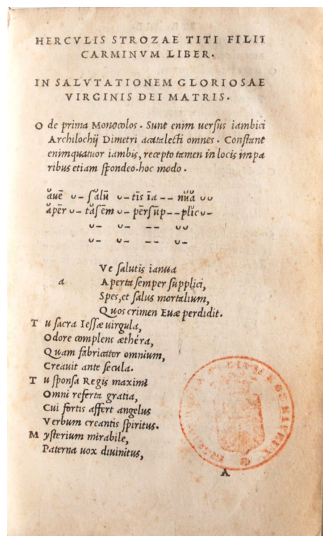 HERCVLIS STROZAE TITI FILII
CARMINVM LIBER.
IN SALVTATIONEM GLORIOSAE
VIRGINIS DEI MATRIS.
O de prima Monocolos. Sunt enim uersus iambici
Archilochij Dimetri acatalecti omnes. Constant
enim quatuor iambis, recepto tamen in locis impa
ribus etiam spondeo. hoc modo.
aue ᴗ- salu ᴗ-tis ia -- nua ᴗ-
aper ᴗ-ta sem ᴗ-persup--plic ᴗ-
ᴗ- -- ᴗ- ᴗ-
ᴗ- -- ᴗ- ᴗ-
Ve salutis ianua
a Aperta semper supplici,
Spes, et salus mortalium,
Quos crimen Euæ perdidit.
T u sacra Iessæ uirgula,
Odore complens æthera,
Quam fabricator omnium,
Creauit ante secula.
T u sponsa Regis maximi
Omni referta gratia,
Cui fortis affert angelus
Verbum creantis spiritus.
M ysterium mirabile,
Paterna uox diuinitus,
A